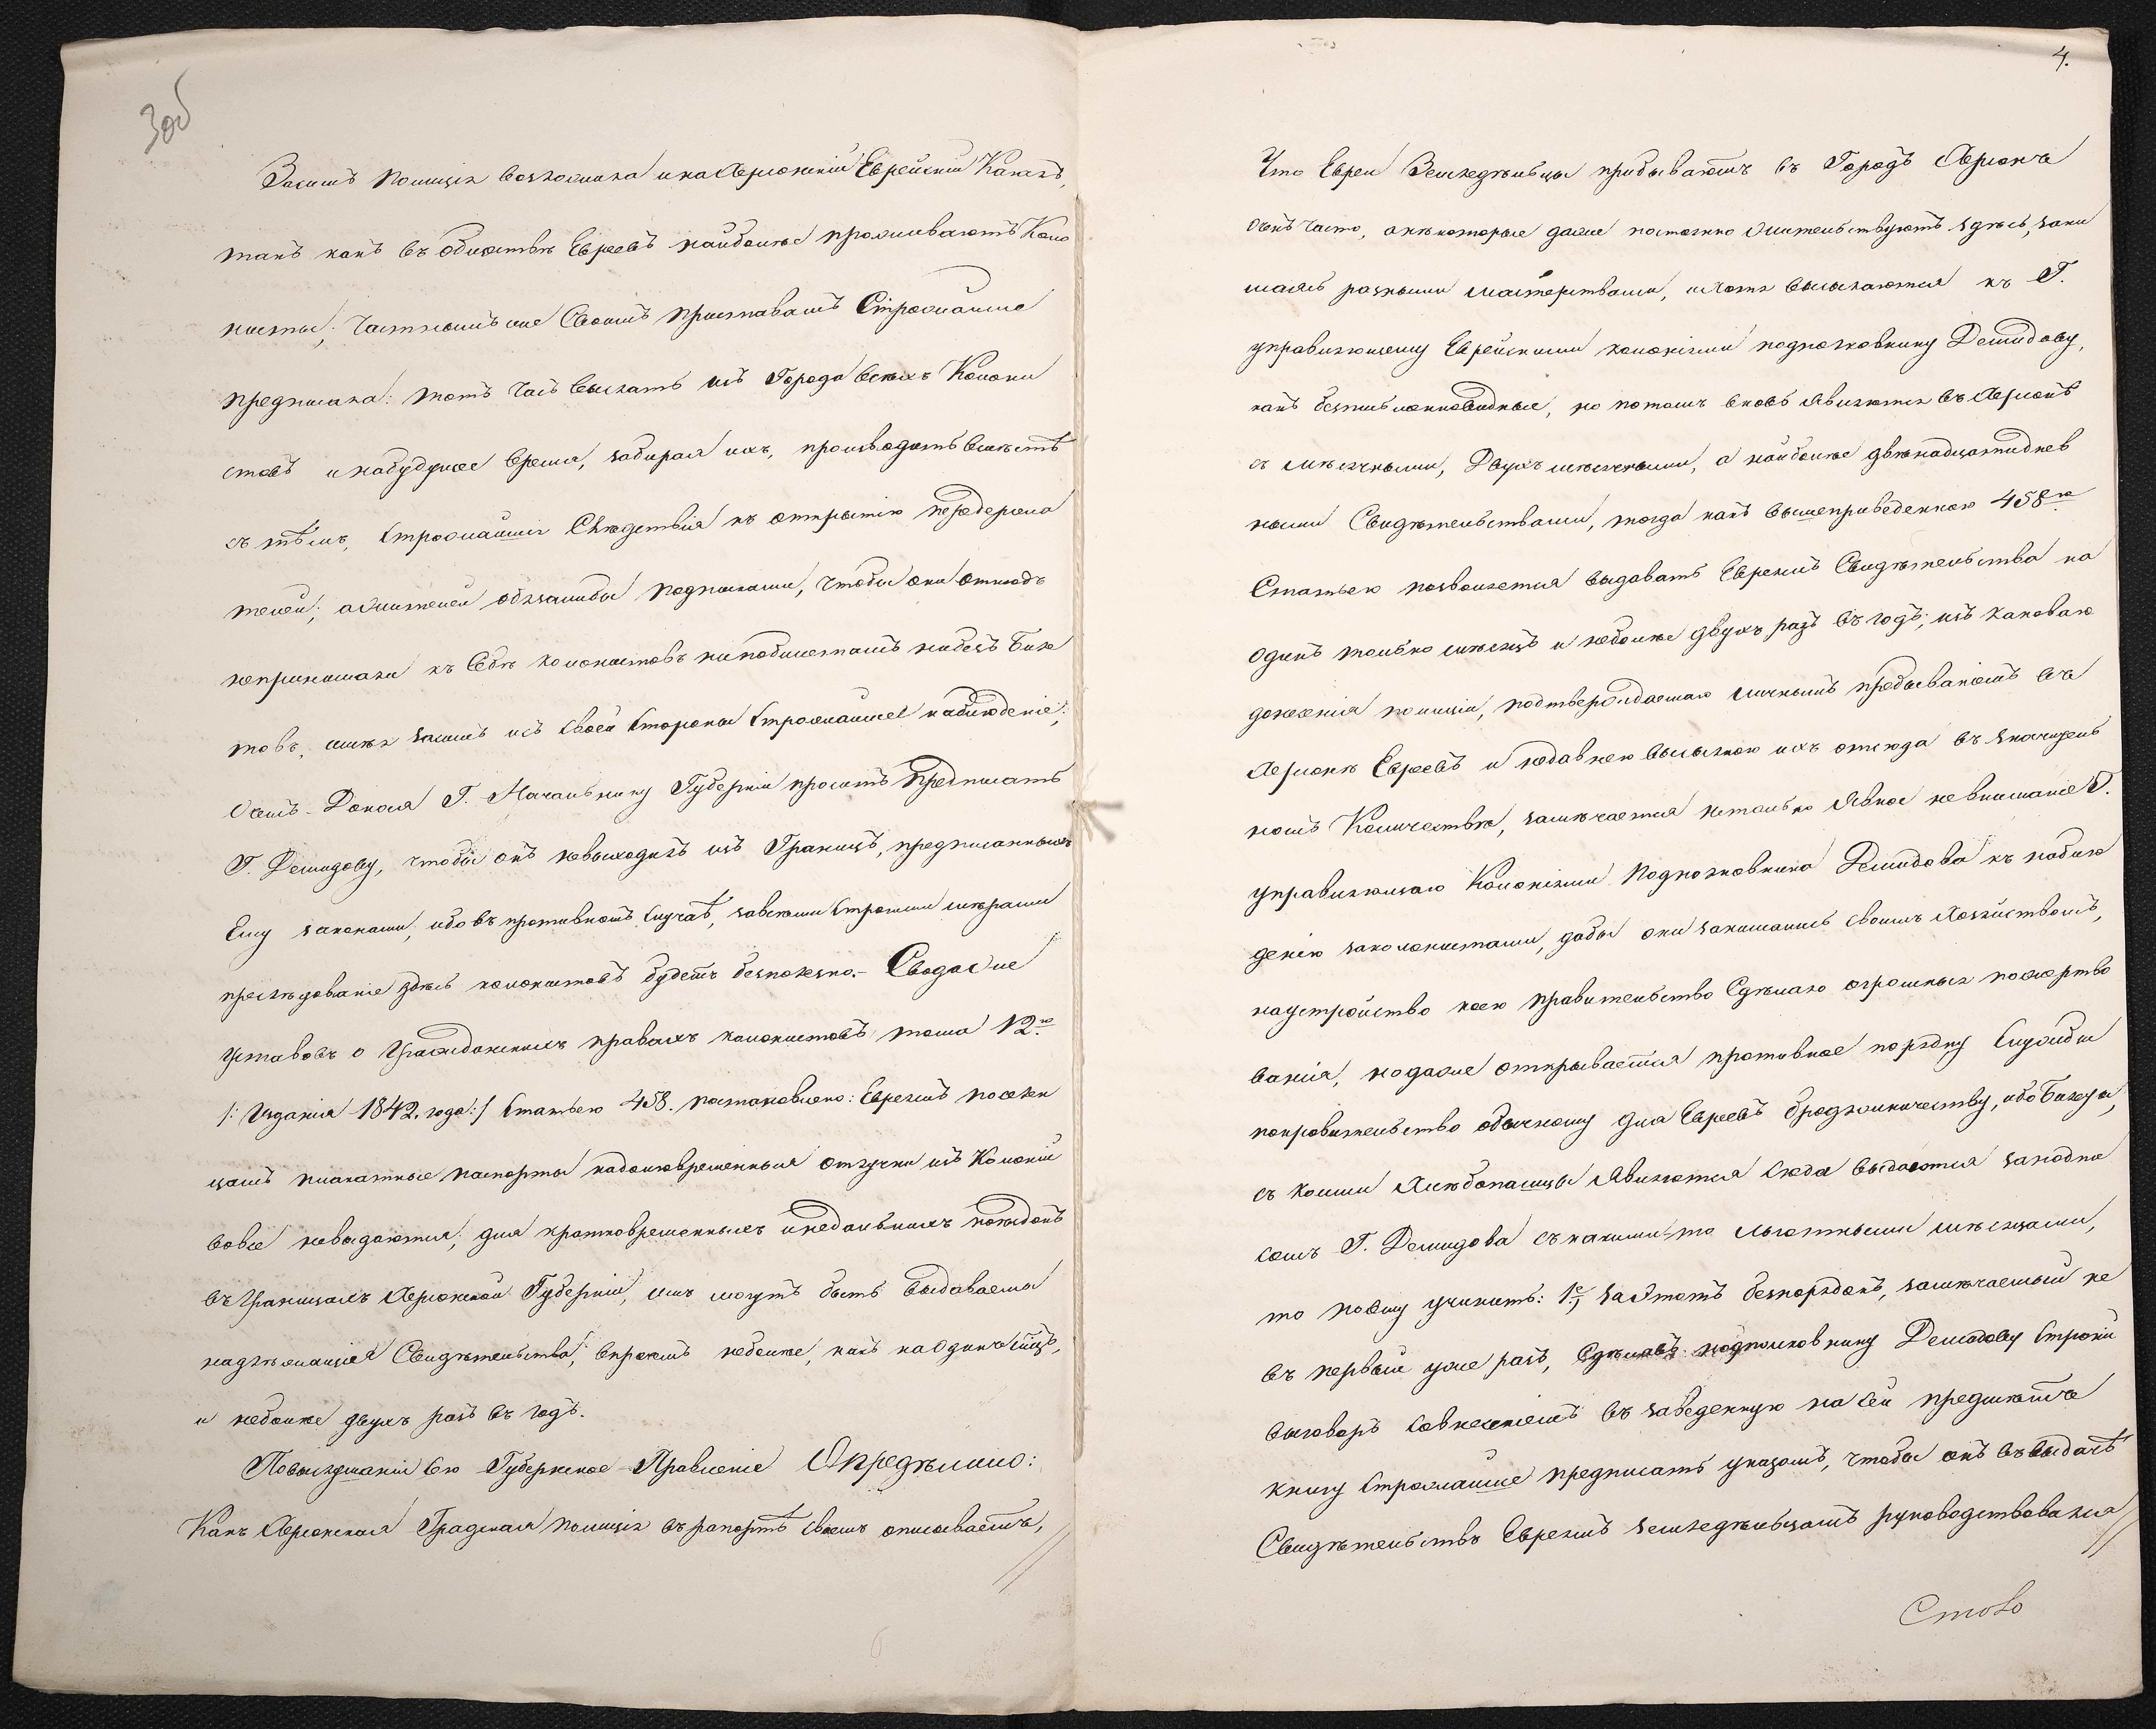 3об
Засимъ Полиція возложила и на Херсонскій Еврейскій Кагалъ,
такъ какъ въ обществѣ Евреевъ наиболѣе проживаютъ Коло
нисты; Частнымъ же Своимъ приставамъ Строжайше
предписала: тотъ часъ выслать изъ Города всѣхъ Колони
стовъ и набудущее время, забирая ихъ, производить вмѣстѣ
съ тѣмъ, Строжайшія Слѣдствія къ открытію передержа
телей; а жителей обязалибы подписками, чтобы они отнюдъ
непринимали къ Себѣ колонистовъ ни побилетамъ ни безъ Биле
товъ, имѣя засимъ изъ своей Стороны Строжайшее наблюденіе;
О чемъ Донося Г. Начальнику Губерніи проситъ предписать
Г. Демидову, чтобы онъ невыходилъ изъ Границъ, предписанныхъ
Ему законами, ибо въ противномъ Случаѣ, завсѣми Строгими мѣрами
преслѣдованіе здѣсь колонистовъ будетъ безполезно.- Сводаже
уставовъ о Гражданскихъ правахъ колонистовъ тома 12го
/: Изданія 1842. года:/ Статьею 458. постановлено: Евреямъ поселен
цамъ плакатные паспорты надолговременныя отлучки изъ Колоній
вовсе невыдаются; для кратковременныхъ инедальнихъ поѣздокъ
въ границахъ Херсонской Губерніи, имъ могутъ быть выдаваемы
надлежащія Свидѣтельства, впрочемъ неболѣе, какъ на Одинъ мѣсяцъ,
и неболѣе двухъ разъ въ годъ.
Повыслушаніи сего Губернское Правленіе Опредѣлило:
Какъ Херсонская Градская полиція въ рапортѣ своемъ описываетъ,
4.
Что Евреи Земледѣльцы прибываютъ въ Городъ Херсонъ
очень часто, анѣкоторые даже постоянно жительствуютъ здѣсь, зани
маясь разными мастерствами, и хотя высылаются къ Г.
управляющему Еврейскими колоніями подполковнику Демидову,
какъ безписьменновидные, но потомъ вновь являются въ Херсонъ
съ мѣсячными, Двухъ мѣсячными, а наиболѣе двѣнадцатиднев
ными Свидѣтельствами, тогда какъ вышеприведенною 458ю
Статьею позволяется выдавать Евреямъ Свидѣтельства на
одинъ только мѣсяцъ и неболѣе двухъ разъ въ годъ; изъ каковаго
донесенія полиціи, подтверждаемаго личнымъ пребываніемъ въ
Херсонѣ Евреевъ и недавнею высылкою ихъ отсюда въ значитель
номъ Количествѣ, замѣчается нетолько явное невниманіе Г.
управляющаго Колоніями Подполковника Демидова къ наблю
денію заколонистами, дабы они занимались своимъ Хозяйствомъ,
наустройство коего правительство Сдѣлало огромныя пожертво
ванія, нодаже открывается противное порядку Службы
покровительство обычному для Евреевъ бродяжничеству, ибо Билеты,
съ коими Хлѣбопашцы Являются Сюда выдаются заподпи
сомъ Г. Демидова съ какими-то льготными мѣсяцами,
то посему учинить: 1е, За Этотъ безпорядокъ, замѣчаемый не
въ первый уже разъ, Сдѣлавъ подполковнику Демидову Строгій
выговоръ Совнесеніемъ въ заведенную на сей предметъ
книгу Строжайше предписать указомъ, чтобы онъ въ выдачѣ
Свидѣтельствъ Евреямъ земледѣльцамъ руководствовался